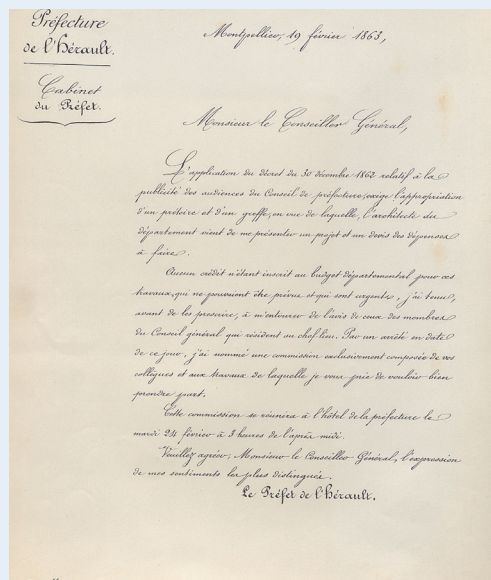 Préfecture
de l'Hérault.
Cabinet
du Préfet.
Montpellier, 19 février 1863,
Monsieur le Conseiller Général,
L'application du décret du 30 décembre 1862 relatif à la
publicité des audiences du Conseil de préfecture, exige l'appropriation
d'un prétoire et d'un greffe, en vue de laquelle, l'architecte du
département vient de me présenter un projet et un devis des dépenses
à faire.
Aucun crédit n'étant inscrit au budget départemental pour ces
travaux, qui ne pouvaient être prévus et qui sont urgents, j'ai tenu,
avant de les prescrire, à m'entourer de l'avis de ceux des membres
du Conseil général qui résident au chef-lieu. Par un arrêté en date
de ce jour, j'ai nommé une commission exclusivement composée de vos
collègues et aux travaux de laquelle je vous prie de vouloir bien
prendre part.
Cette commission se réunira à l'hôtel de la préfecture le
mardi 24 février à 3 heures de l'après midi.
Veuillez agréer, Monsieur le Conseiller Général, l'expression
de mes sentiments les plus distingués.
Le Préfet de l'Hérault.